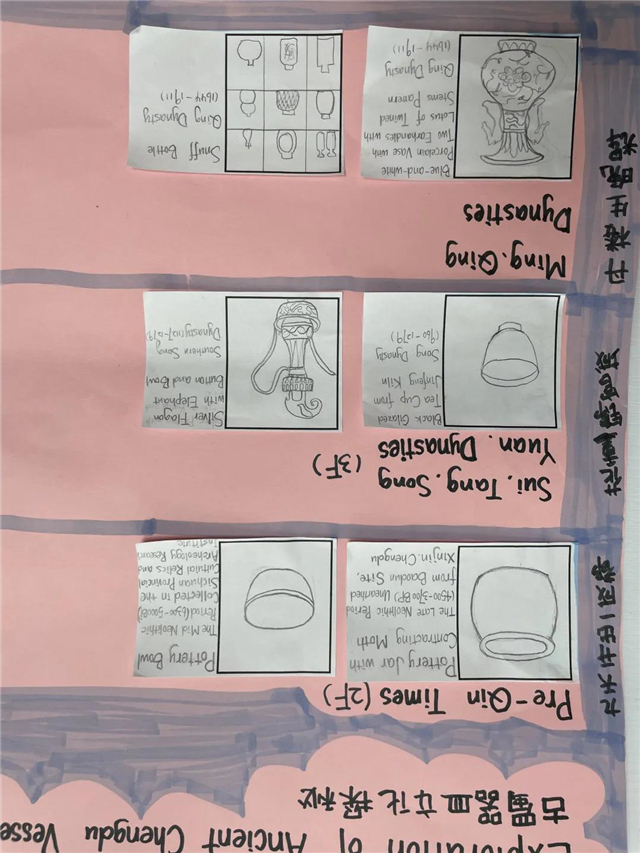 Exploration of Ancient Chengdu Vesse
古蜀器皿文化探秘
九天开出一成都
Pre-Qin Times (2F)
Pottery Jar with
Contracting Moth
The Late Neolithic Period
(4500-3700BP) Unearthed
from Baodun Site,
Xinjin.Chengdu
Pottery Bowl
The Mid Neolithic
Period (6300-5000BP)
Collected in the
Sichuan Provincial
Cultural Relics and
Archeology Research
Institute
花重锦官城
Sui.Tang.Song
Yuan.Dynasties (3F)
Black Glazed
Tea Cup from
Jinfeng Kiln
Song Dynasty
(960-1279)
Silver Flagon
with Elephant
Button and Bowl
Southern Song
丹楼生晚
Ming.Qing
Dynasties
Blue-and-white
Porcelain Vase with
Two Earhandles with
Lotus of Twined
Stems Pavern
Qing Dynasty
(1644-1911)
Snuff Bottle
Qing Dynasty
(1644-1911)